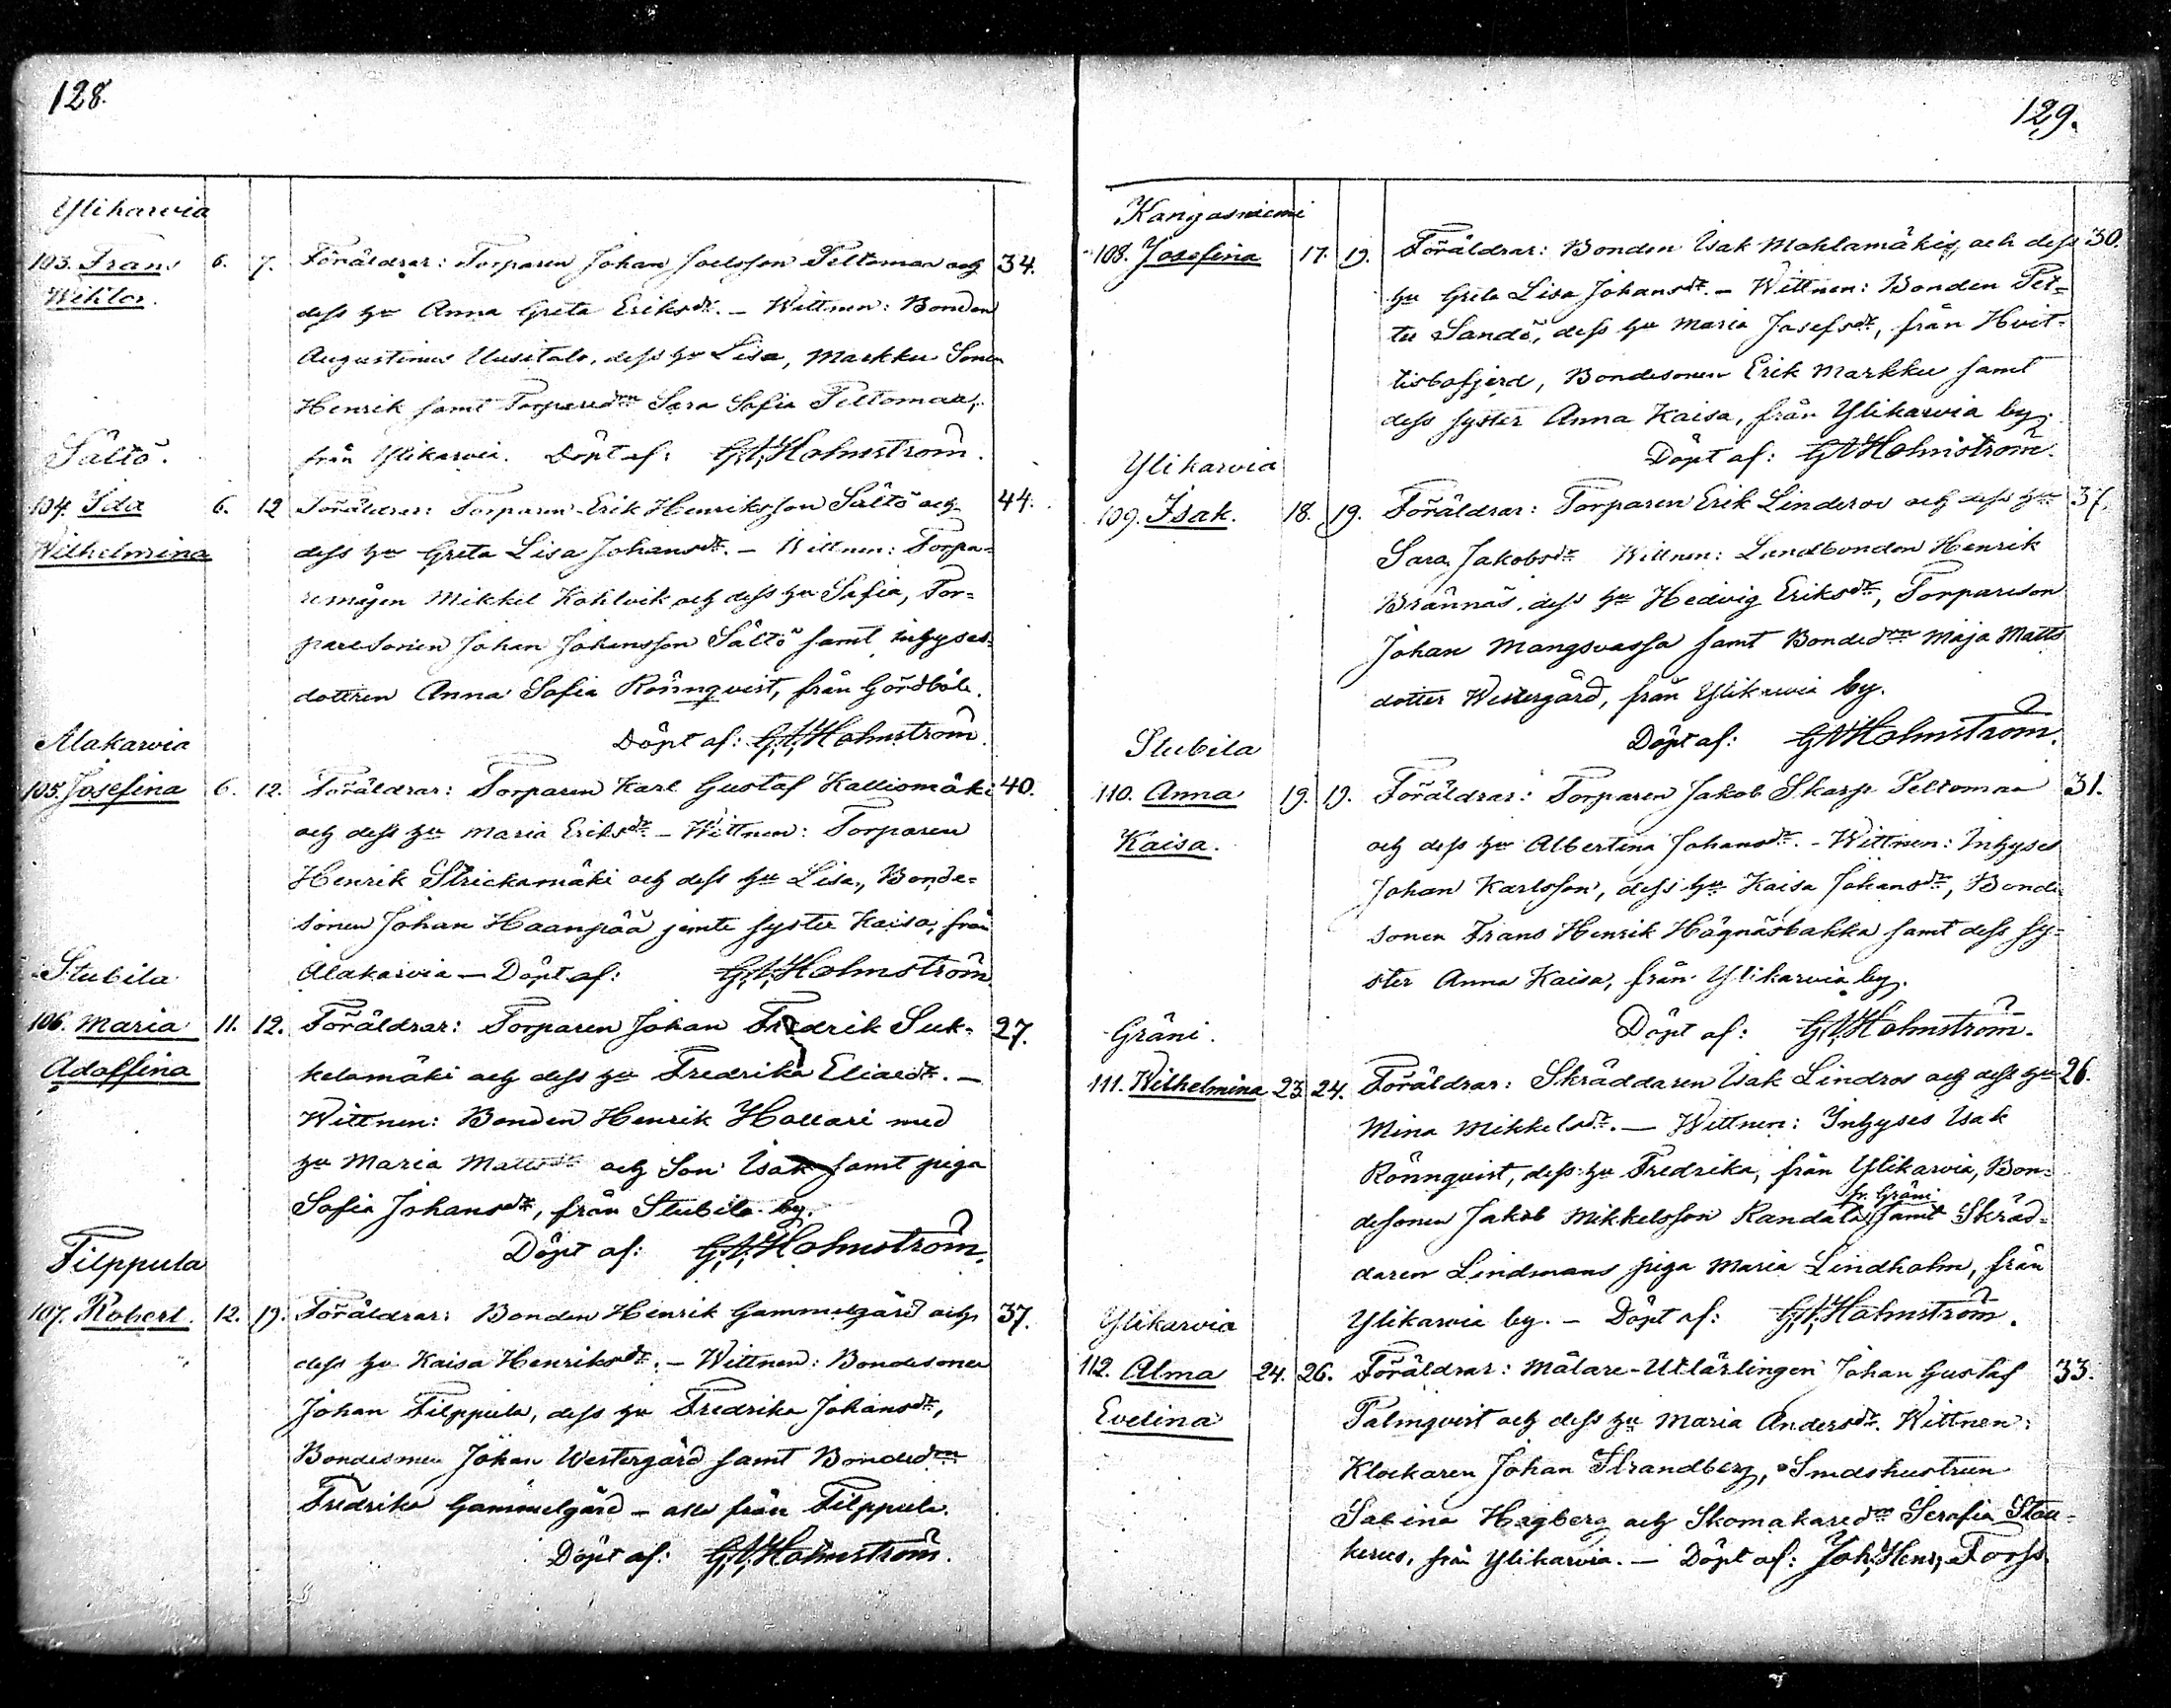 128.
Ylikarvia
103. Frans 6. 7. Föräldrar: Torparen Johan Joelsson Peltomaa och 34.
Wiktor. dess hu Anna Greta Eriksdr. – Wittnen: Bonden
Augustinus Uusitalo, dess hu Lisa, Markku Sonen
Henrik samt Torparedrn Sara Sofia Peltomaa,
från Ylikarvia. Döpt af: GAHolmström.
Sältö.
104. Ida 6. 12 Föräldrar: Torparen Erik Henriksson Sältö och 44.
Wilhelmina dess hu Greta Lisa Johansdr. – Wittnen: Torpa=
remågen Mikkel Kohlvik och dess hu Sofia, Tor=
paresonen Johan Johansson Sältö samt inhyses=
dottren Anna Sofia Rönnqvist, från Gördböle.
Döpt af: GAHolmström.
Alakarvia
105. Josefina 6. 12. Föräldrar: Torparen Karl Gustaf Kalliomäki 40.
och dess hu Maria Eriksdr. – Wittnen: Torparen
Henrik Strickamäki och dess hu Lisa, Bonde=
sonen Johan Haanpää jemte syster Kaisa, från
Alakarvia – Döpt af: GAHolmström
Stubila
106. Maria 11. 12. Föräldrar: Torparen Johan Fredrik Suk= 27.
Adolfina kelamäki och dess hu Fredrika Eliaedr. –
Wittnen: Bonden Henrik Hollari med
hu Maria Mattsdr och Son Isak samt piga
Sofia Johansdr, från Stubila by.
Döpt af: GAHolmström.
Filppula
107. Robert. 12. 19. Föräldrar: Bonden Henrik Gammelgård och 37.
dess hu Kaisa Henriksdr. – Wittnen: Bondesonen
Johan Filppula, dess hu Fredrika Johansdr,
Bondesonen Johan Westergård samt Bondedrn
Fredrika Gammelgård – alla från Filppula.
Döpt af: GAHolmström.
129.
Kangasniemi
108. Josefina 17. 19. Föräldrar: Bonden Isak Mahlamäki och dess 30.
hu Greta Lisa Johansdr. – Wittnen: Bonden Pet=
ter Sandö, dess hu Maria Josefsdr, från Hvit=
tisbofjerd, Bondesonen Erik Markku samt
dess syster Anna Kaisa, från Ylikarvia by.
Döpt af: GAHolmström.
Ylikarvia
109. Isak. 18. 19. Föräldrar: Torparen Erik Linderos och dess hu 37.
Sara Jakobsdr Wittnen: Landbonden Henrik
Brännäs, dess hu Hedvig Eriksdr, Torpareson
Johan Mangsvassa samt Bondedrn Maja Matts
dotter Westergård, från Ylikarvia by.
Döpt af: GAHolmström.
Stubila
110. Anna 19. 19. Föräldrar: Torparen Jakob Skarp Peltomaa 31.
Kaisa. och dess hu Albertina Johansdr. – Wittnen: Inhyses
Johan Karlsson, dess hu Kaisa Johansdr, Bonde
sonen Frans Henrik Högnäsbakka samt dess sy=
ster Anna Kaisa, från Ylikarvia by.
Döpt af: GAHolmström.
Gräni.
111. Wilhelmina 23. 24. Föräldrar: Skräddaren Isak Lindros och dess hu 26.
Mina Mikkelsdr. – Wittnen: Inhyses Isak
Rönnqvist, dess hu Fredrika, från Ylikarvia, Bon=
fr. Gräni
desonen Jakob Mikkelsson Randala, samt Skräd=
daren Lindmans piga Maria Lindholm, från
Ylikarvia by. – Döpt af: GAHolmström.
Ylikarvia
112. Alma 24. 26. Föräldrar: Målare-Utlärlingen Johan Gustaf 33.
Evelina Palmqvist och dess hu Maria Andersdr. Wittnen:
Klockaren Johan Strandberg, Smedshustrun
Sabina Hagberg och Skomakaredrn Serafia Stau=
kerus, från Ylikarvia. – Döpt af: Joh. Henr. Forss